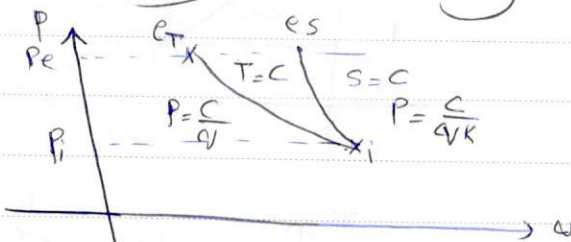 P
Pe
eT
es
T=C
S=C
P=C/v
P=C/vK
Pi
i
v